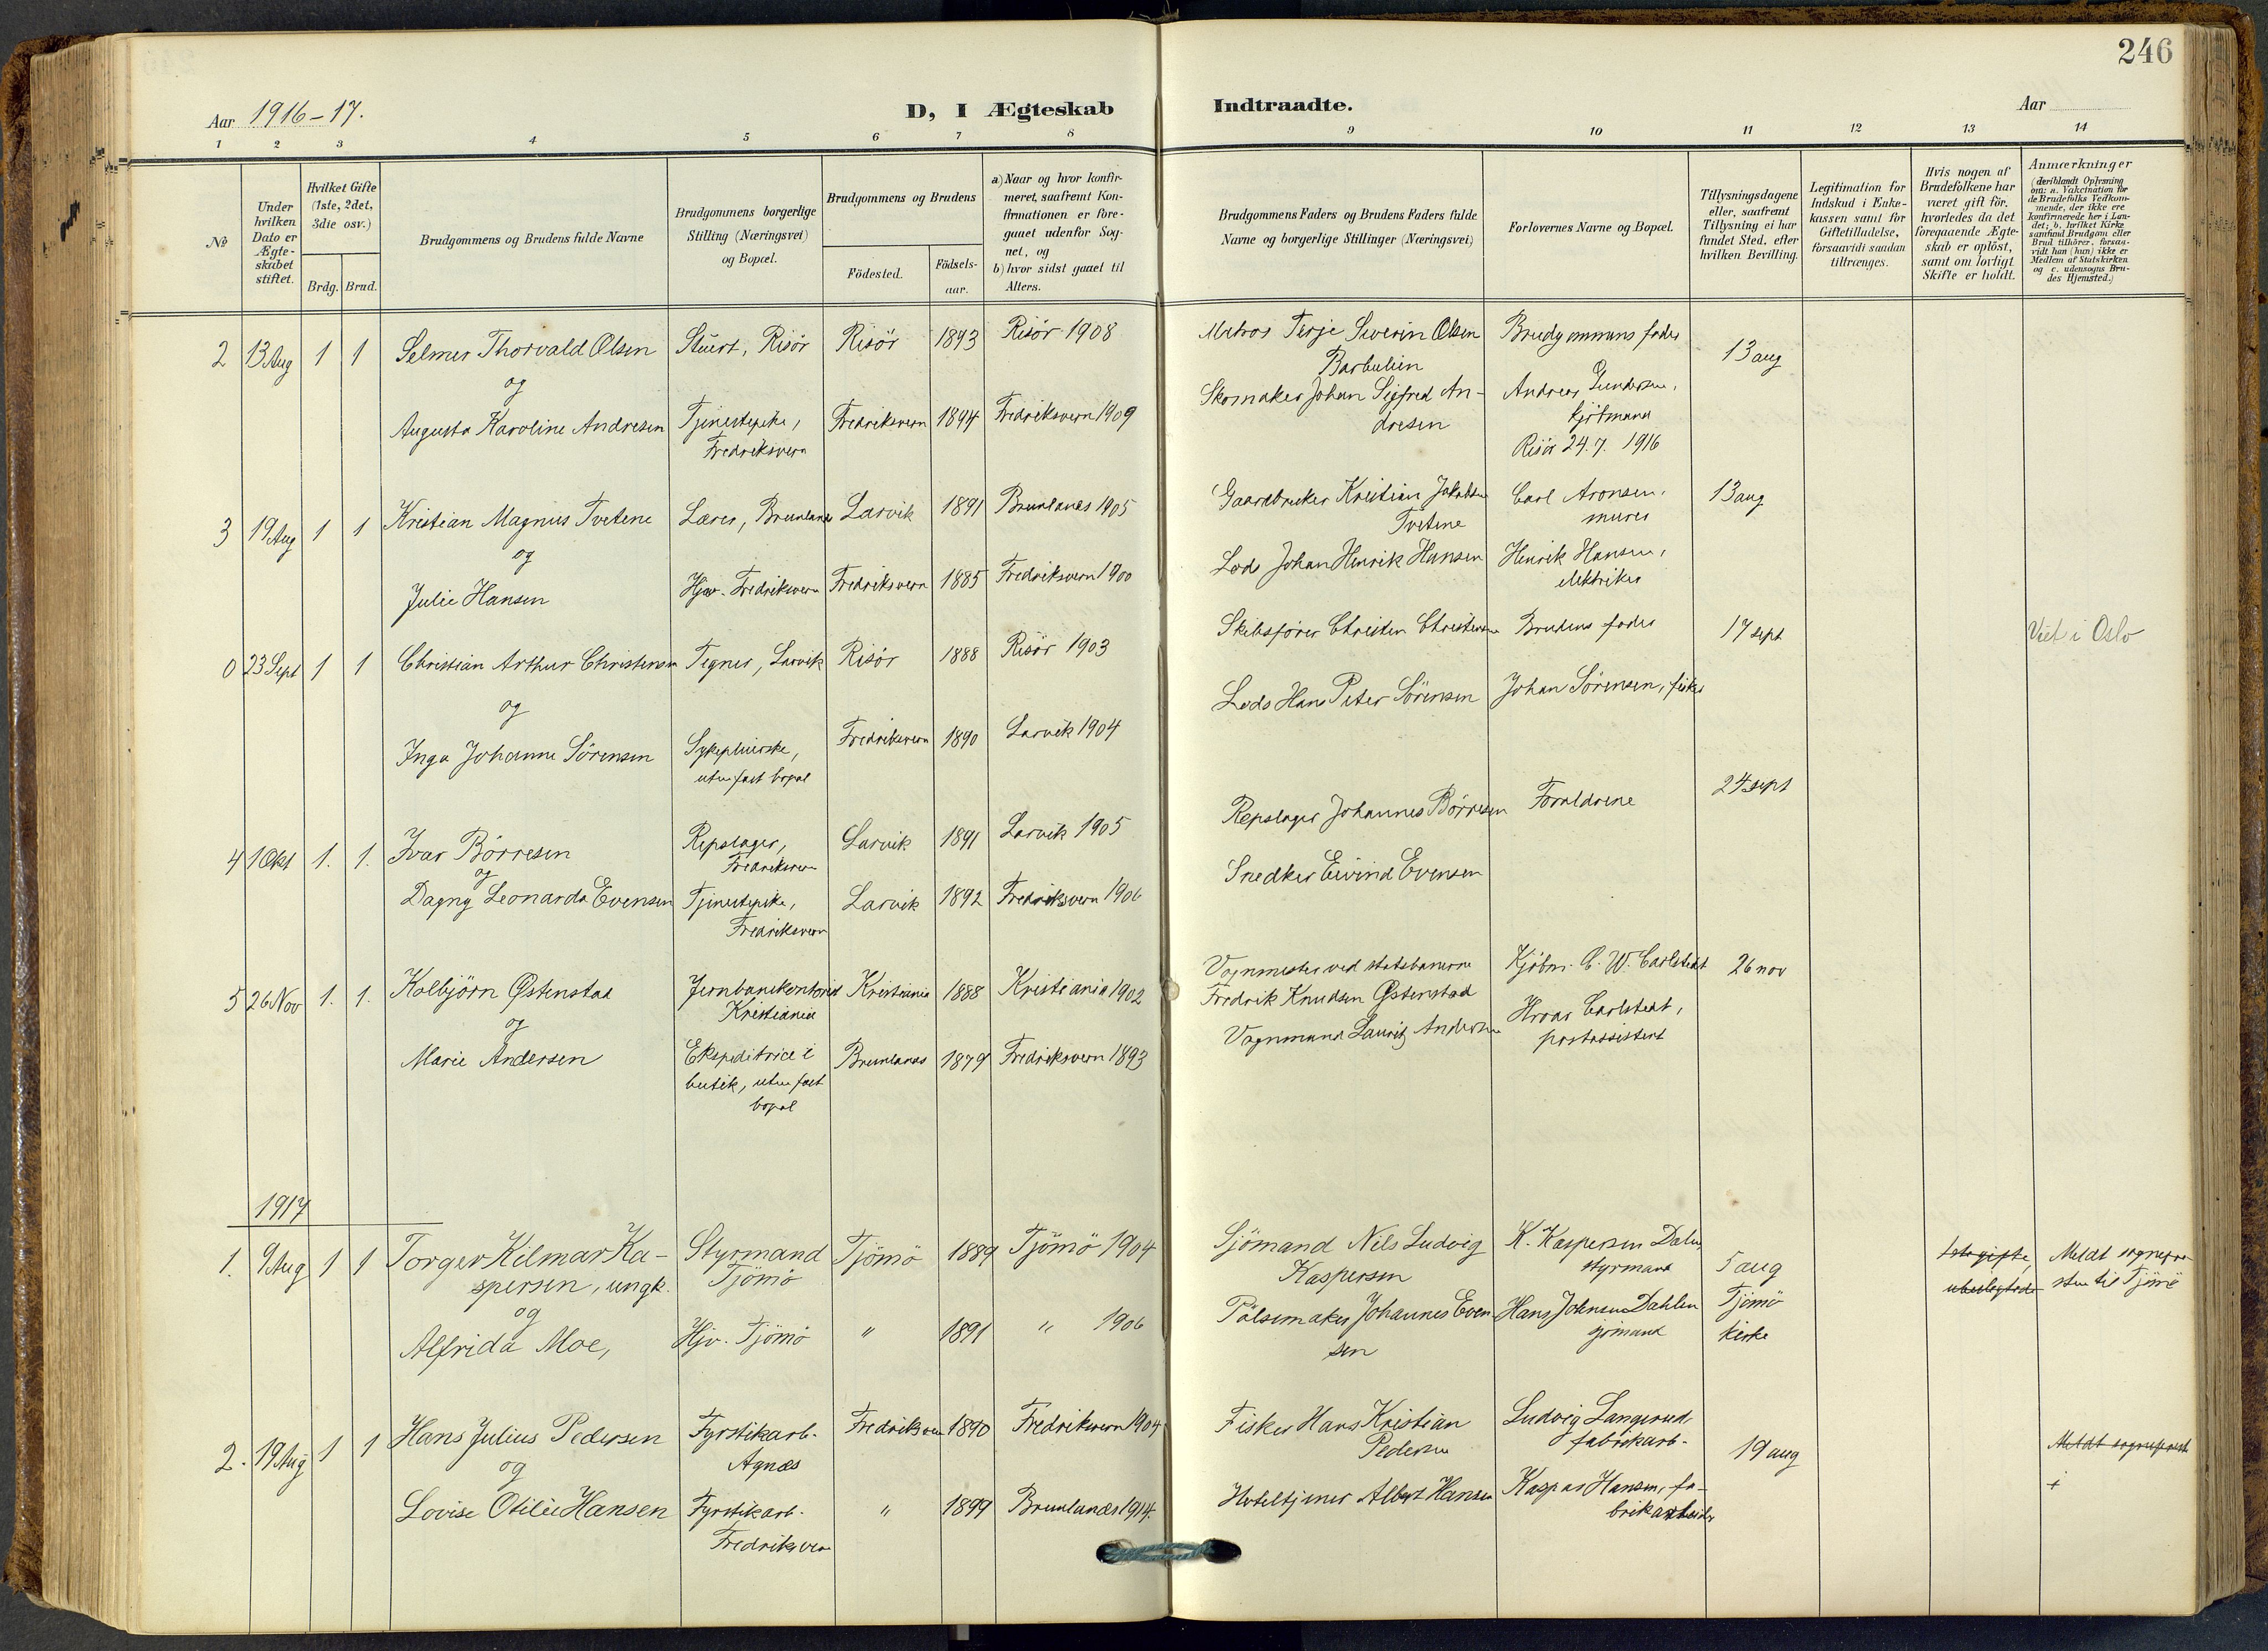 246
Aar 1916-17.
D, I Ægteskab
Indtraadte.
Aar
1 2 3 4 5 6 7 8 9 10 11 12 13 14
No
Under
hvilken
Dato er
Ægte-
skabet
stiftet.
Hvilket Gifte
(1ste, 2det,
3die osv.)
Brdg. Brud.
Brudgommens og Brudens fulde Navne
Brudgommens borgerlige
Stilling (Næringsvei)
og Bopæl.
Brudgommens og Brudens
Födested.
Födsels-
aar.
a) Naar og hvor konfir-
meret, saafremt Kon-
firmationen er fore-
gaaet udenfor Sog-
net, og
b) hvor sidst gaaet til
Alters.
Brudgommens Faders og Brudens Faders fulde
Navne og borgerlige Stillinger (Næringsvei)
Forlovernes Navne og Bopæl.
Tillysningsdagene
eller, saafremt
Tillysning ei har
fundet Sted, efter
hvilken Bevilling.
Legitimation for
Indskud i Enke-
kassen samt for
Giftetilludelse,
forsaavidt saadan
tiltrænges.
Hvis nogen af
Brudefolkene har
været gift för,
hvorledes da det
foregaaende Ægte-
skab er oplöst,
samt om lovligt
Skifte er holdt.
Anmærkninger
(deriblandt Oplysning
om: a. Vakcination for
de Brudefolks Vedkom-
mende, der ikke ere
konfirmerede her i Lan-
det; b. hvilket Kirke
samfund Brudgom eller
Brud tilhörer, forsaa-
vidt han (hun) ikke er
Medlem af Statskirken
og c. udensogns Bru-
des Hjemsted.)
2 13 Aug 1 1 Selmer Thorvald Olsen Stuert, Risör Risör 1893 Risör 1908 Terje Severin Olsen Brudgommens fader 13 aug
og Barbulien
Augusta Karoline Andresen Tjenestepike, Fredriksvern 1894 Fredriksvern 1909 Skomaker Johan Sigfred An- Andreas Gundersen,
Fredriksvern dresen kjötmand
Risör 24.7. 1916
3 19 Aug 1 1 Kristian Magnus Tvetene Lærer, Brunlanes Larvik 1891 Brunlanes 1905 Gaardbruker Kristian Jakobsen Carl Aronsen, 13 aug
og Tvetene murer
Julie Hansen Hjv. Fredriksvern Fredriksvern 1885 Fredriksvern 1900 Lods Johan Henrik Hansen Henrik Hansen,
elektriker
0 23 Sept 1 1 Christian Arthur Christensen Tegner, Larvik Risör 1888 Risör 1903 Skibsförer Christen Christensen Brudens fader 17 sept Viet i Oslo
og
Inga Johanne Sörensen Sykepleierske, Fredriksvern 1890 Larvik 1904 Lods Hans Peter Sörensen Johan Sörensen, fisker
uten fast bopæl
4 1 Okt 1. 1. Ivar Börresen Repslager, Larvik 1891 Larvik 1905 Repslager Johannes Börresen Forældrene 24 sept
Fredriksvern
og
Dagny Leonarda Evensen Tjenestepike, Larvik 1892 Fredriksvern 1906 Snedker Eivind Evensen
Fredriksvern
5 26 Nov 1. 1. Kolbjörn Østenstad Kristiania 1888 Kristiania 1902 Vognmester ved statsbanerne Kjöbm. C. W. Carlstedt 26 nov
Kristiania Fredrik Knudsen Østenstad
og Hroar Carlstedt,
Marie Andersen Ekspeditrice i Brunlanes 1879 Fredriksvern 1893 Vognmand Lauritz Andersen postassistent
butik, uten fast
bopæl
1917
1. 9 Aug 1 1 Torger Hilmar Ka- Styrmand Tjömö 1889 Tjömö 1904 Sjömand Nils Ludvig K. Kaspersen Dalen, 5 aug Meldt sognepre-
spersen, ungk. Tjömö Kaspersen styrmand Tjömö ubeslegtede sten til Tjömö
og kirke
Alfrida Moe, Hjv. Tjömö " 1891 " 1906 Pölsemaker Johannes Even- Hans Johnsen Dahlen
sen sjömand
2. 19 Aug 1 1 Hans Julius Pedersen Fyrstikarb. Fredriksvern 1890 Fredriksvern 1904 Fisker Hans Kristian Ludvig Langerud, 19 aug Meldt sognepresten
og Agnes Pedersen fabrikarb. i
Lovise Otilie Hansen Fyrstikarb. " 1899 Brunlanes 1914. Hoteltjener Albert Hansen Kaspar Hansen, fa-
Fredriksvern brikarbeider